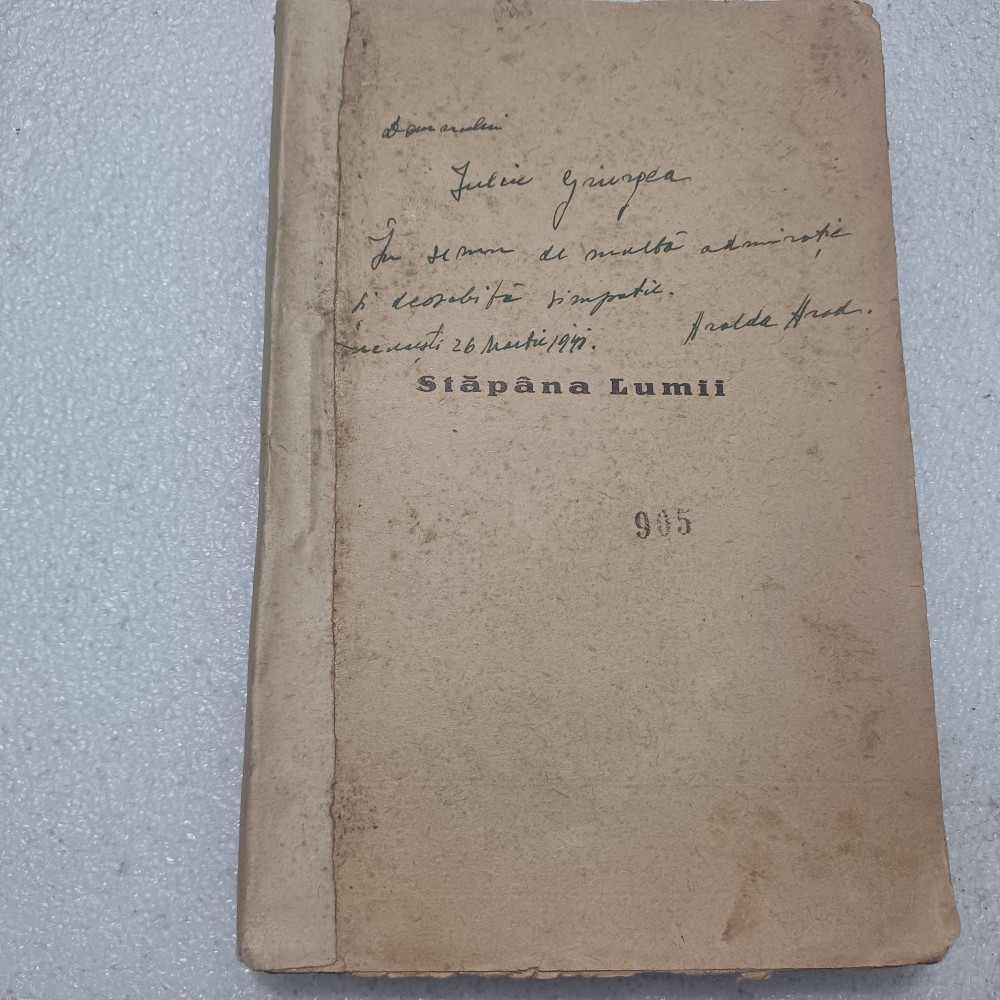 Domnului
Iuliu Giurgea
În semn de multă admirație
și deosebită simpatie.
26 Martie 1941. Aralda Arad.
Stăpâna Lumii
905